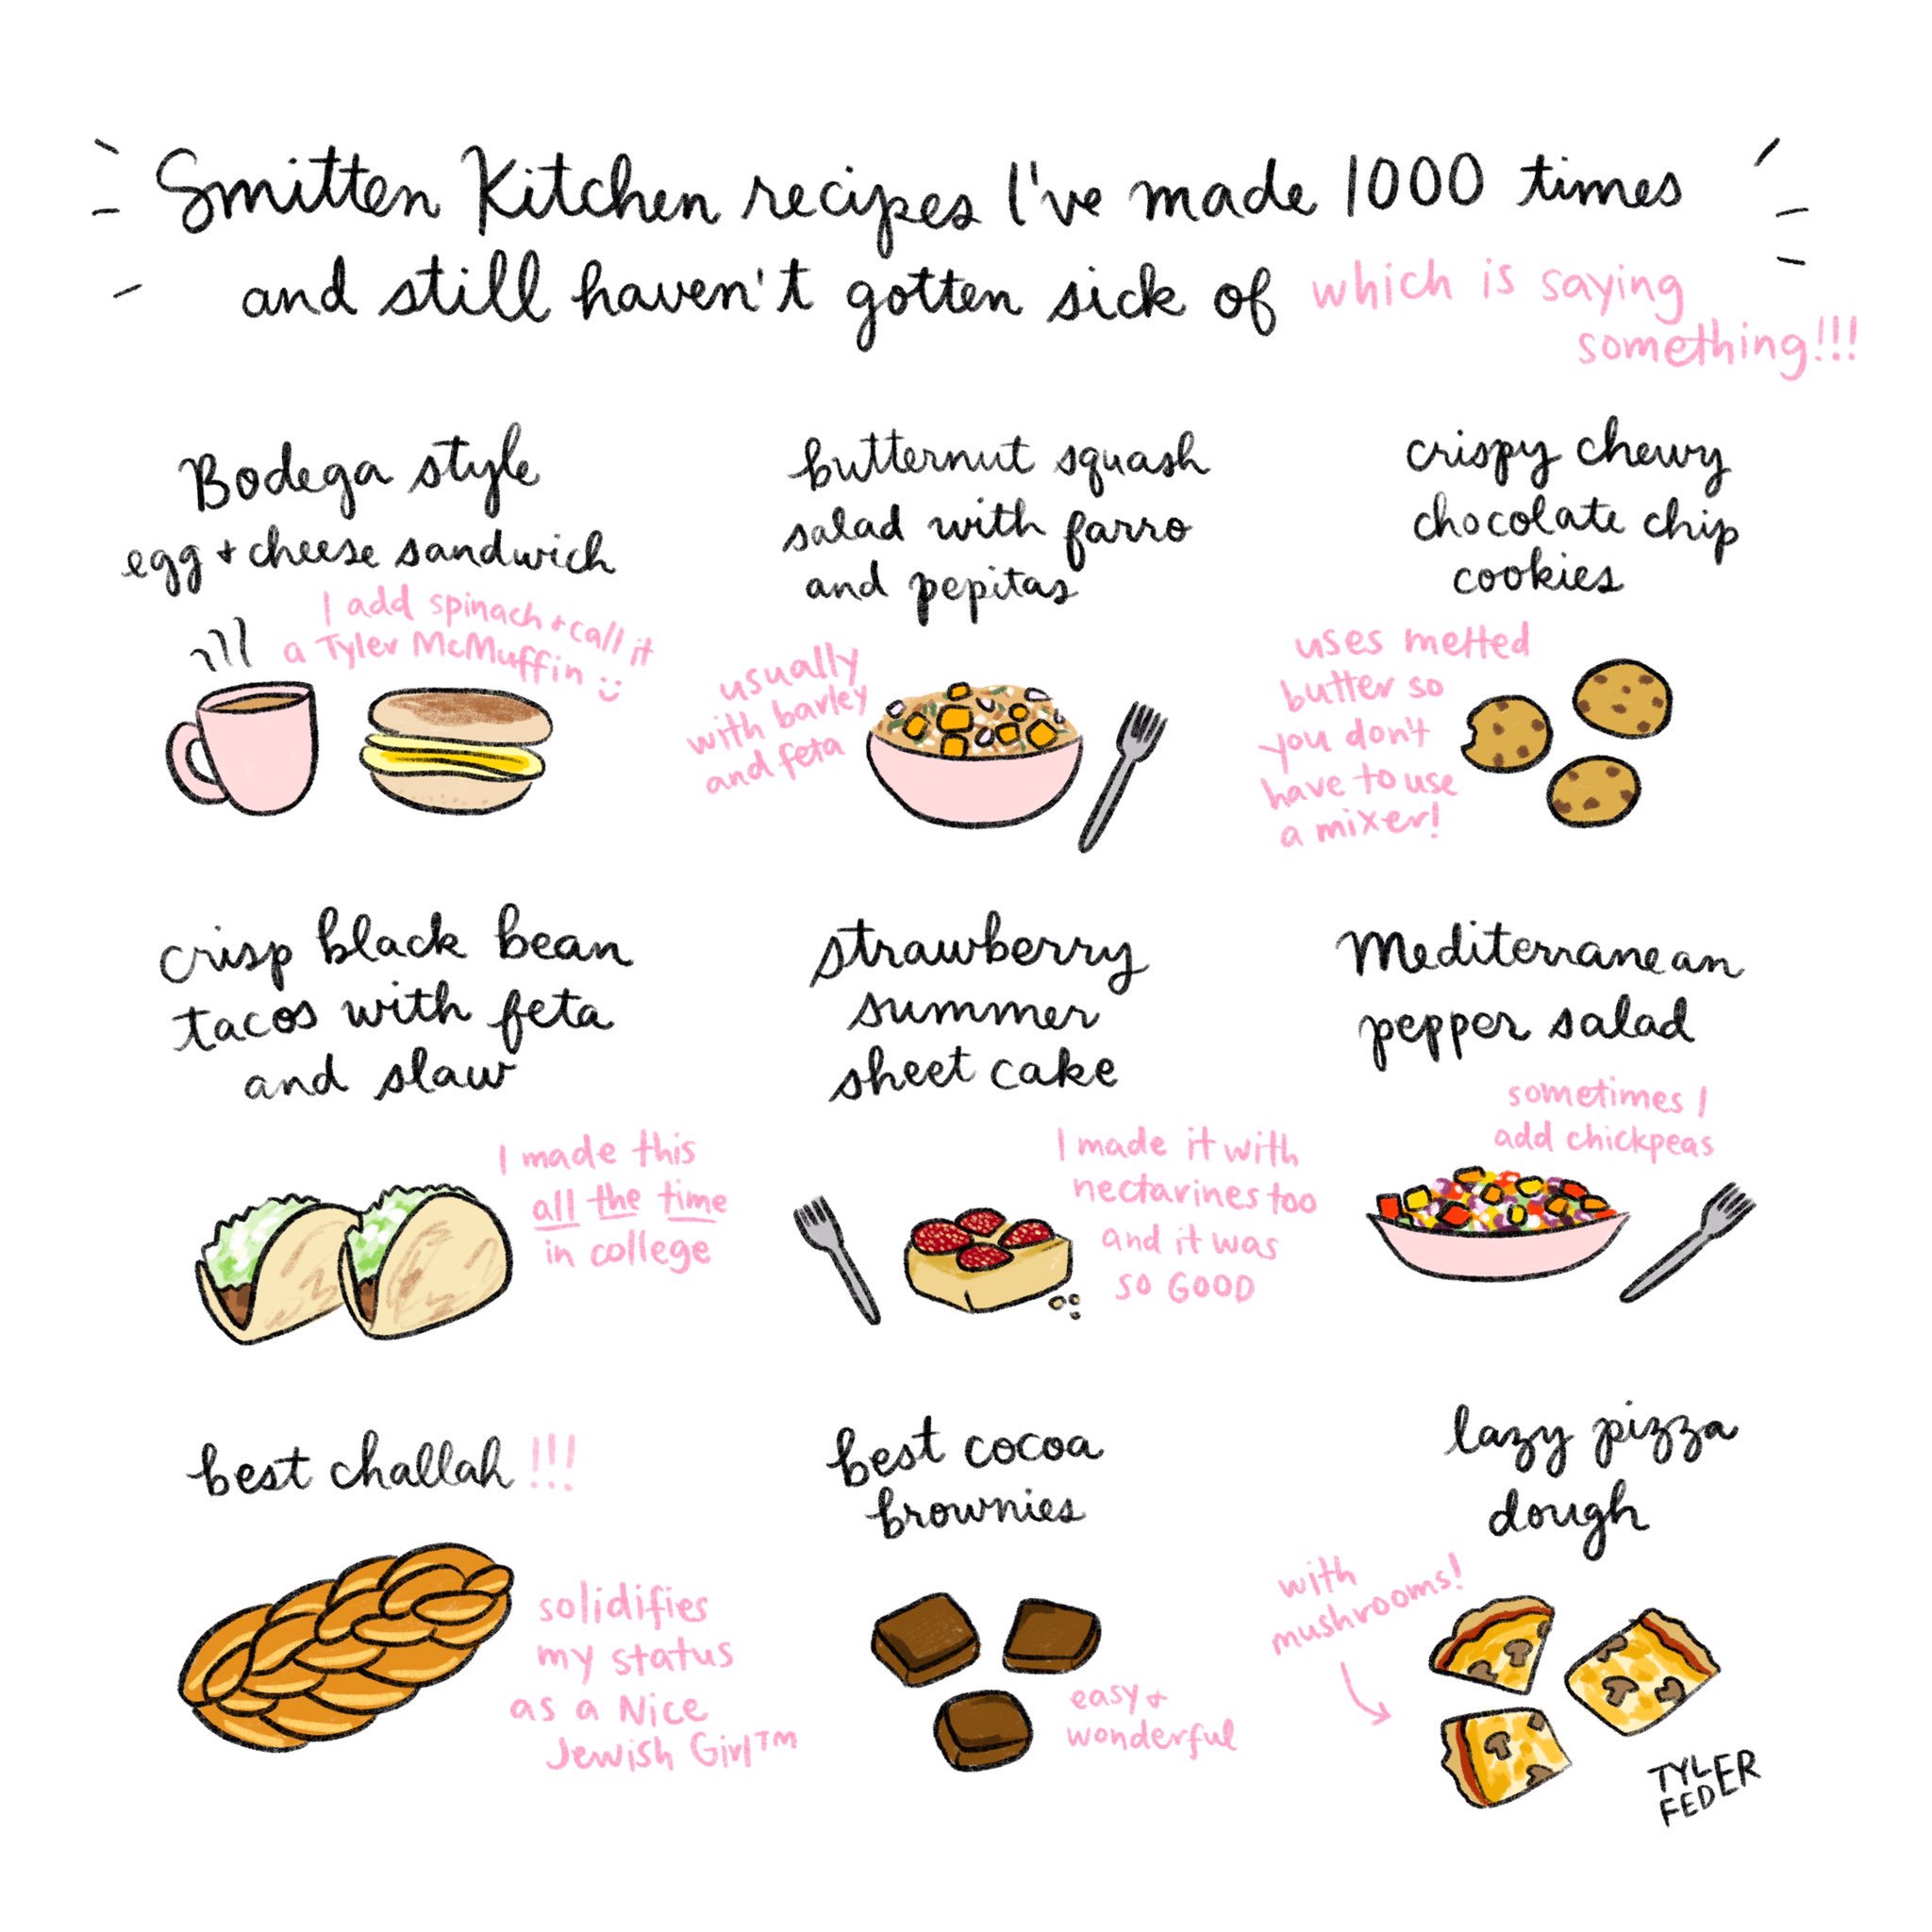 Smitten Kitchen recipes I've made 1000 times
and still haven't gotten sick of which is saying
something!!!
Bodega style
egg + cheese sandwich
I add spinach + call it
a Tyler McMuffin
butternut squash
salad with farro
and pepitas
usually
with barley
and feta
crispy chewy
chocolate chip
cookies
uses melted
butter so
you don't
have to use
a mixer!
crisp black bean
tacos with feta
and slaw
I made this
all the time
in college
strawberry
summer
sheet cake
I made it with
nectarines too
and it was
SO GOOD
Mediterranean
pepper salad
sometimes I
add chickpeas
best challah !!!
solidifies
my status
as a Nice
Jewish Girl™
best cocoa
brownies
easy +
wonderful
lazy pizza
dough
with
mushrooms!
TYLER
FEDER